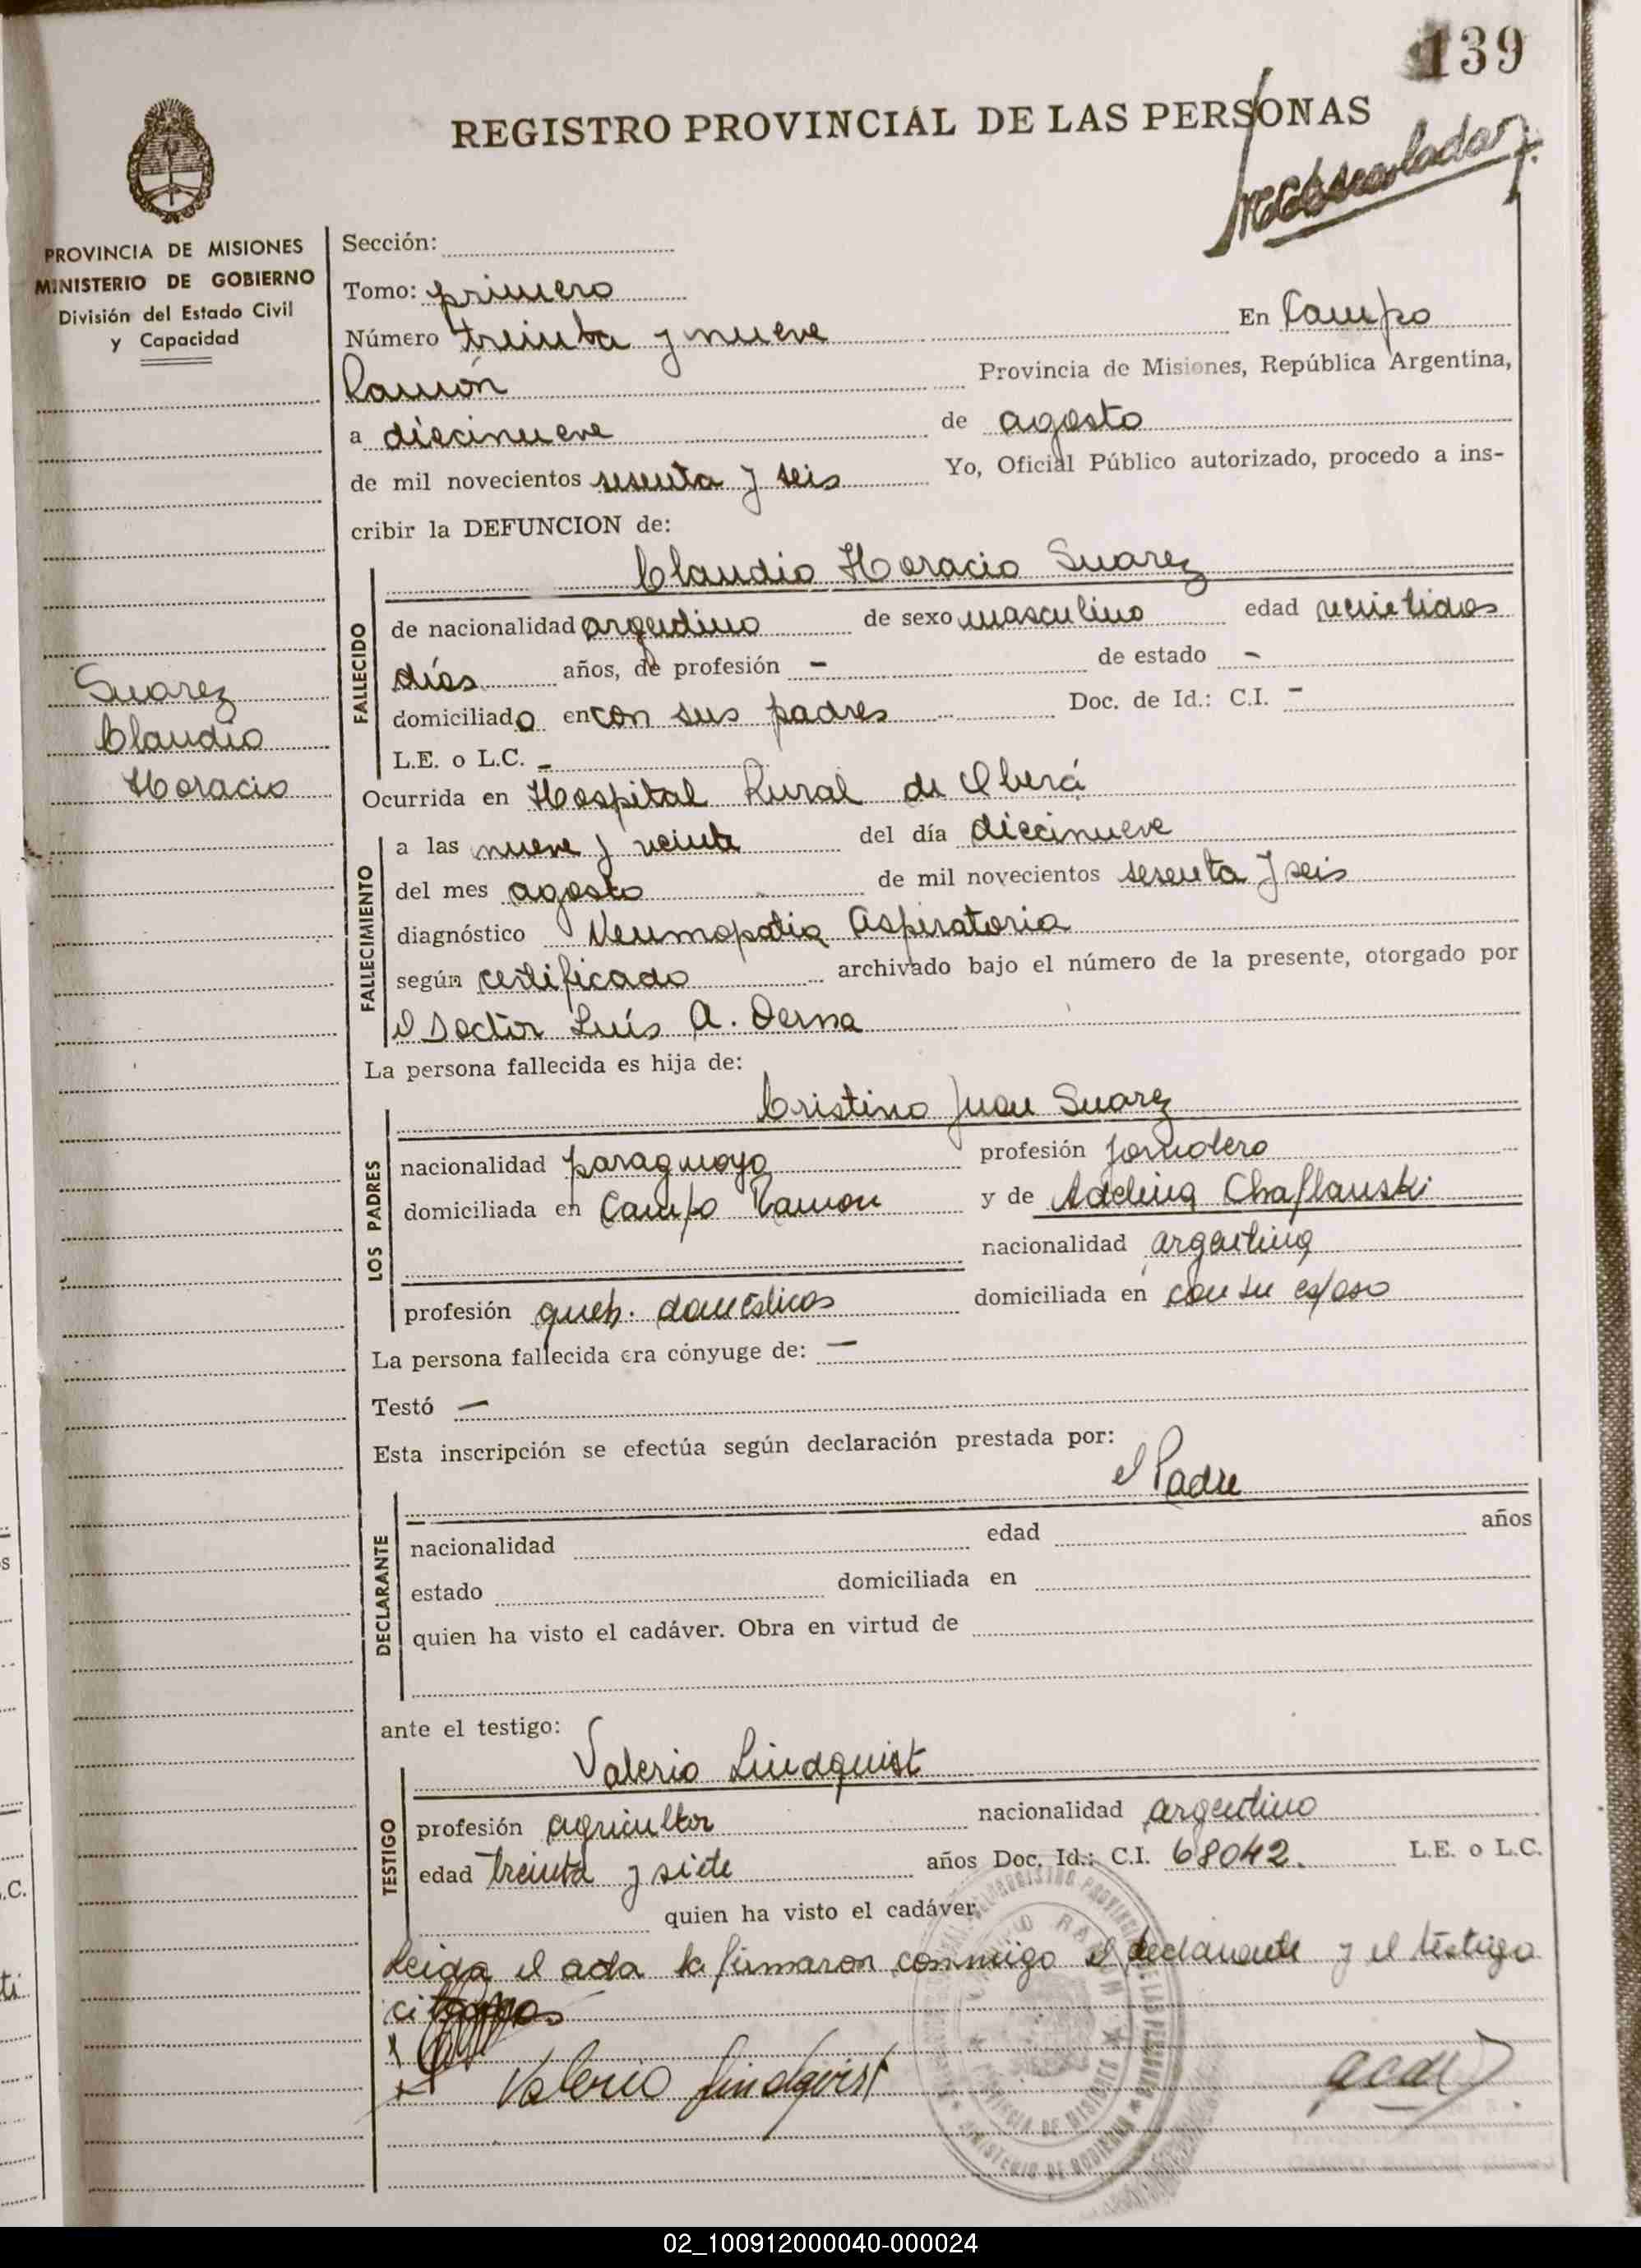 139
REGISTRO PROVINCIAL DE LAS PERSONAS
PROVINCIA DE MISIONES
MINISTERIO DE GOBIERNO
División del Estado Civil
y Capacidad
Suarez
Claudio
Horacio
Sección:
Tomo: primero
Número treinta y nueve En Campo
Ramón Provincia de Misiones, República Argentina,
a diecinueve de agosto
de mil novecientos sesenta y seis Yo, Oficial Público autorizado, procedo a ins-
cribir la DEFUNCION de:
Claudio Horacio Suarez
FALLECIDO
de nacionalidad argentino de sexo masculino edad veintidos
días años, de profesión - de estado -
domiciliado en con sus padres Doc. de Id.: C.I. -
L.E. o L.C. -
Ocurrida en Hospital Rural de Oberá
FALLECIMIENTO
a las nueve y veinte del día diecinueve
del mes agosto de mil novecientos sesenta y seis
diagnóstico Neumopatia Aspiratoria
según certificado archivado bajo el número de la presente, otorgado por
el Doctor Luís A. Derna
La persona fallecida es hija de:
Cristino Juan Suarez
LOS PADRES
nacionalidad paraguaya profesión jornalero
domiciliada en Campo Ramon y de Adelina Chaflauski
nacionalidad argentina
profesión queh. domésticos domiciliada en con su esposo
La persona fallecida era cónyuge de: -
Testó -
Esta inscripción se efectúa según declaración prestada por:
el Padre
DECLARANTE
nacionalidad edad años
estado domiciliada en
quien ha visto el cadáver. Obra en virtud de
ante el testigo:
Valerio Lindquist
TESTIGO
profesión agricultor nacionalidad argentino
edad treinta y siete años Doc. Id.: C.I. 68042. L.E. o L.C.
quien ha visto el cadáver
Leida el acta la firmaron conmigo el declarante y el testigo
Valerio Lindqvist
02_100912000040-000024